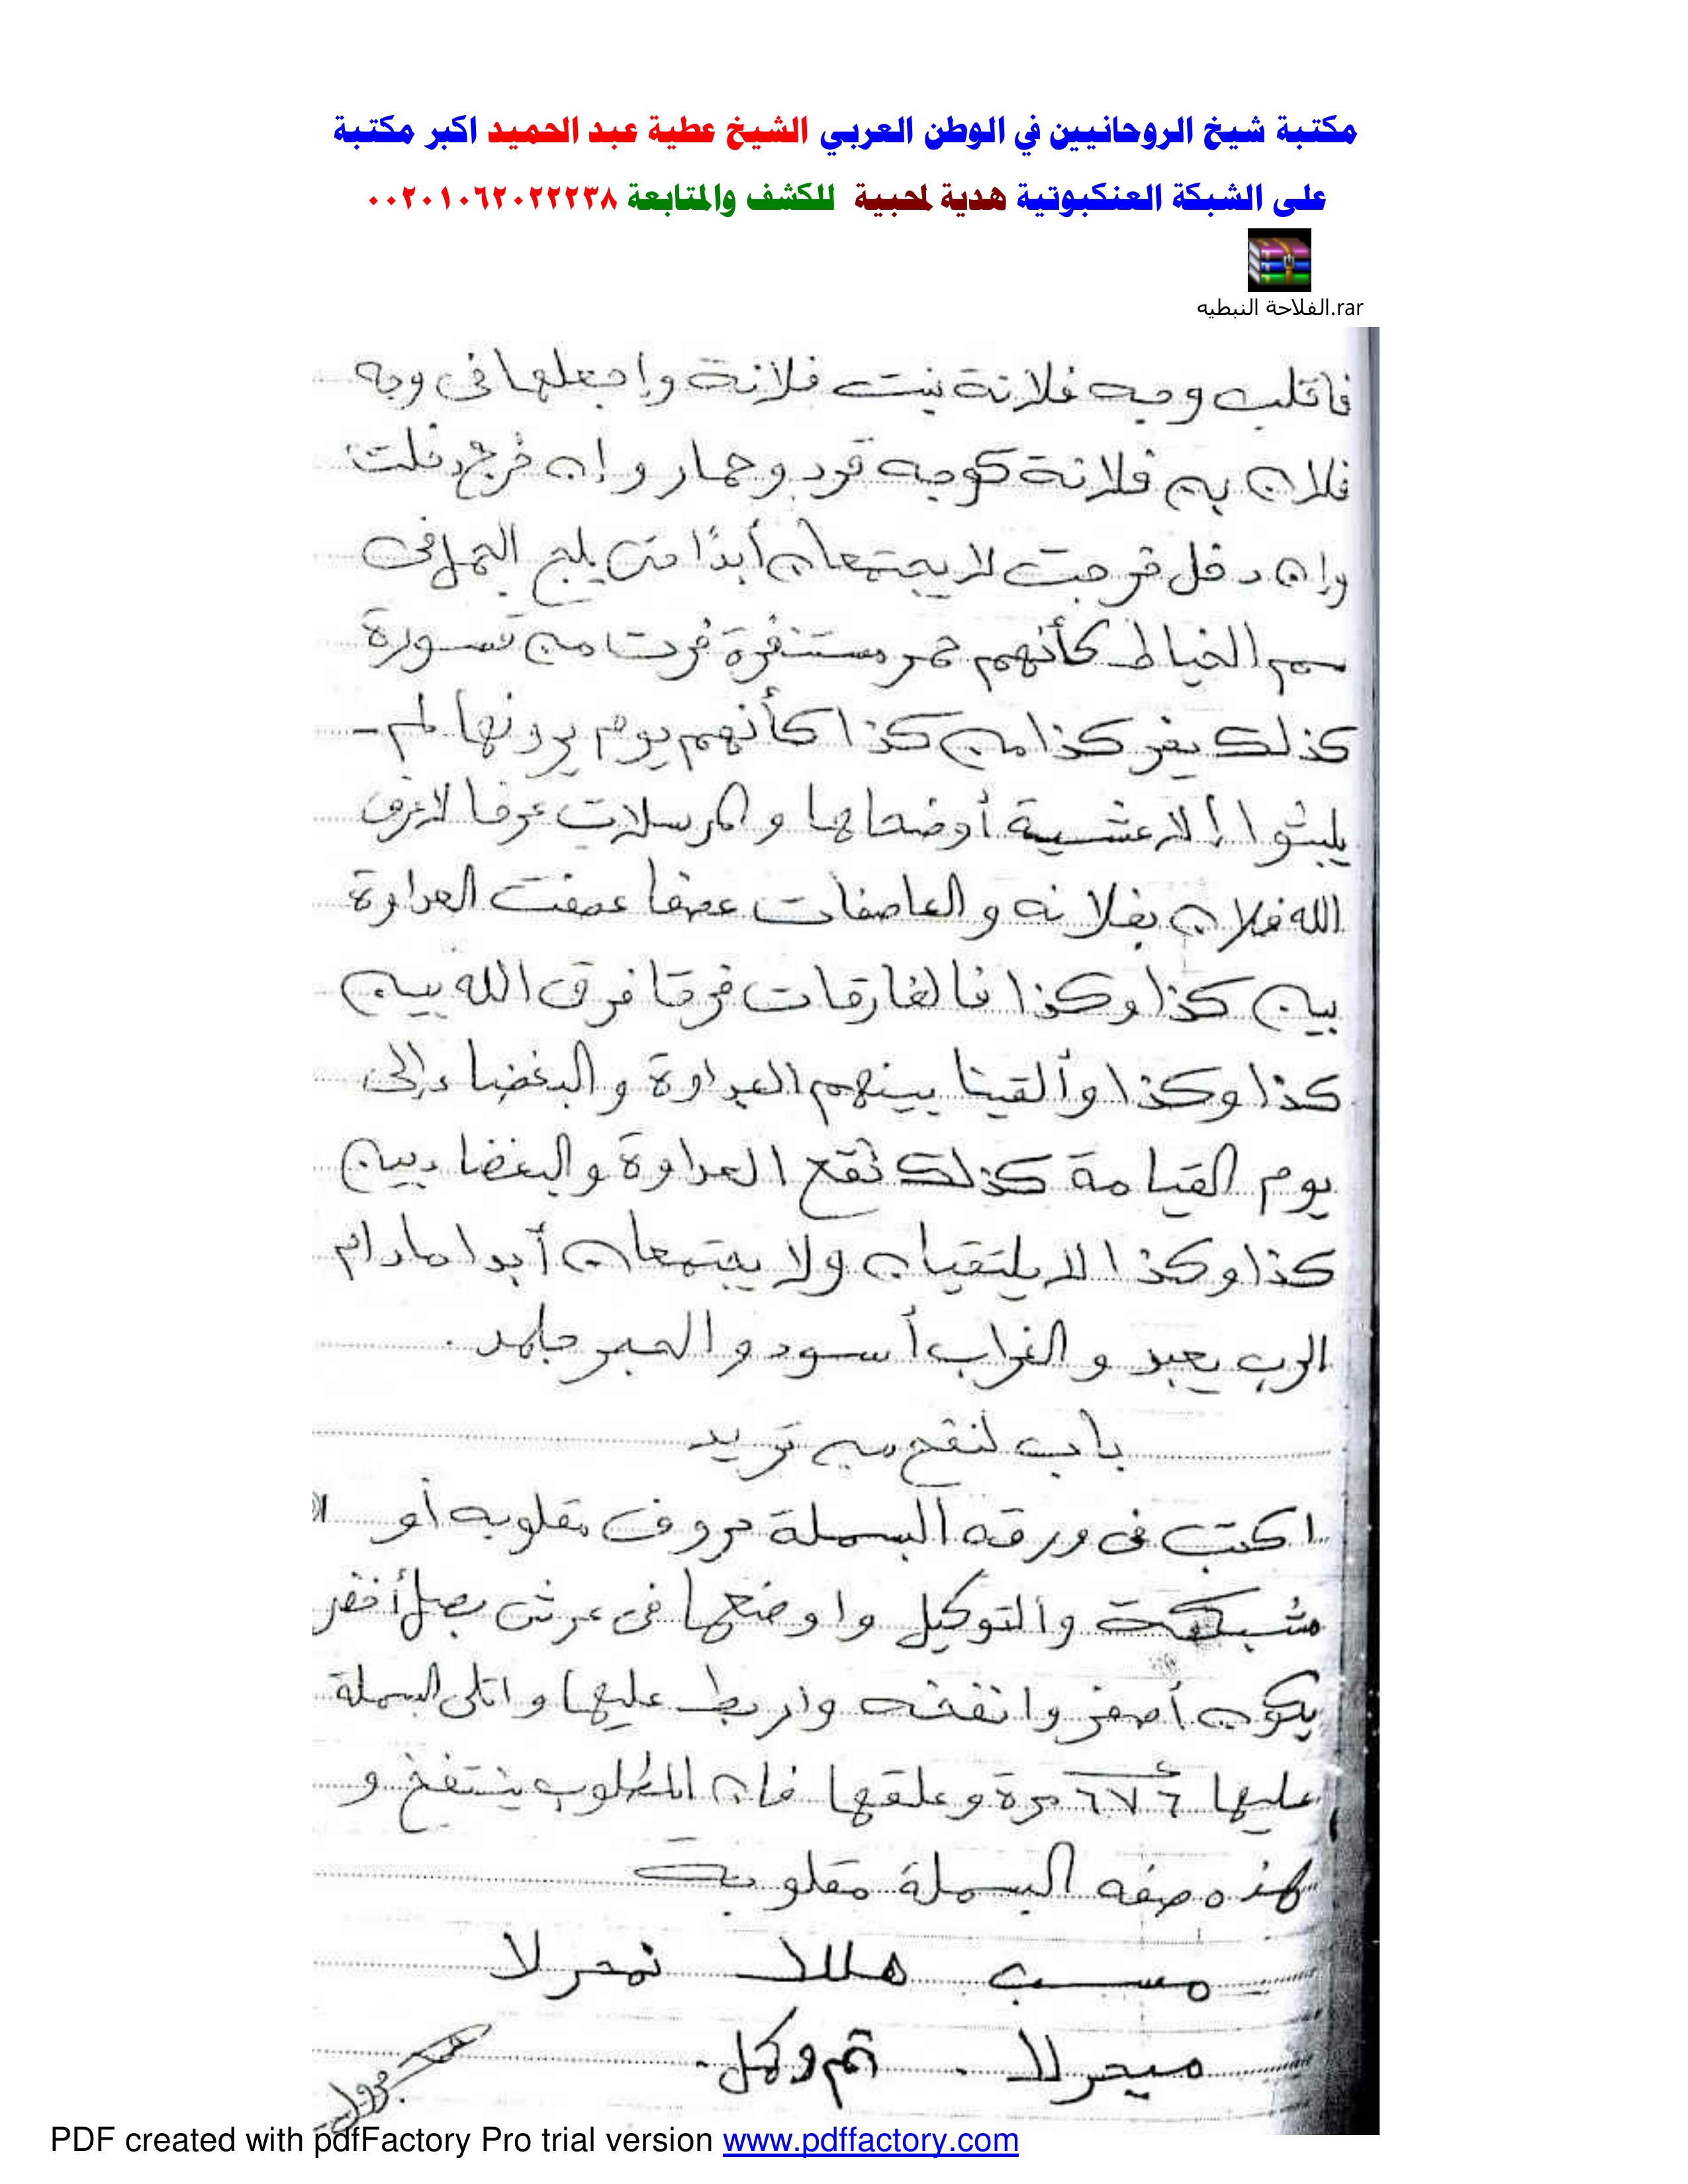 مكتبة شيخ الروحانيين في الوطن العربي الشيخ عطية عبد الحميد اكبر مكتبة
على الشبكة العنكبوتية هدية لمحبية للكشف والمتابعة ٠٠٢٠١٠٦٢٠٢٢٢٣٨
الفلاحة النبطيه.rar
فاقلب وجه فلانة بنت فلانة واجعلها فى وجه
فلان بن فلانة كوجه قرد وحمار وإن خرج دخلت
وإن دخل خرجت لا يجتمعان أبدًا حتى يلج الجمل فى
سم الخياط كأنهم حمر مستنفرة فرت من قسورة
كذلك يفر كذا من كذا كأنهم يوم يرونها لم
يلبثوا إلا عشية أوضحاها والمرسلات عرفا لا عرف
الله فلان بفلانه والعاصفات عصفا عصفت العداوة
بين كذا وكذا فالفارقات فرقا فرق الله بين
كذا وكذا وألقينا بينهم العداوة والبغضاء إلى
يوم القيامة كذلك تقع العداوة والبغضاء بين
كذا وكذا لا يلتقيان ولا يجتمعان أبدا مادام
الرب يعبد والغراب أسود والحبر جامد .
باب لنفخ من تريد
اكتب فى ورقه البسملة حروف مقلوبه أو
مشبكة والتوكيل واوضعها فى عرش بصل أخضر
يكون أصفر وانفخه واربط عليها واتلى البسملة
عليها ٦٧٦ مرة وعلقها فان المطلوب ينتفخ و
هذه صفه البسملة مقلوبة
مسب هللا نمحرلا
ميحرلا . تم وكمل .
PDF created with pdfFactory Pro trial version www.pdffactory.com